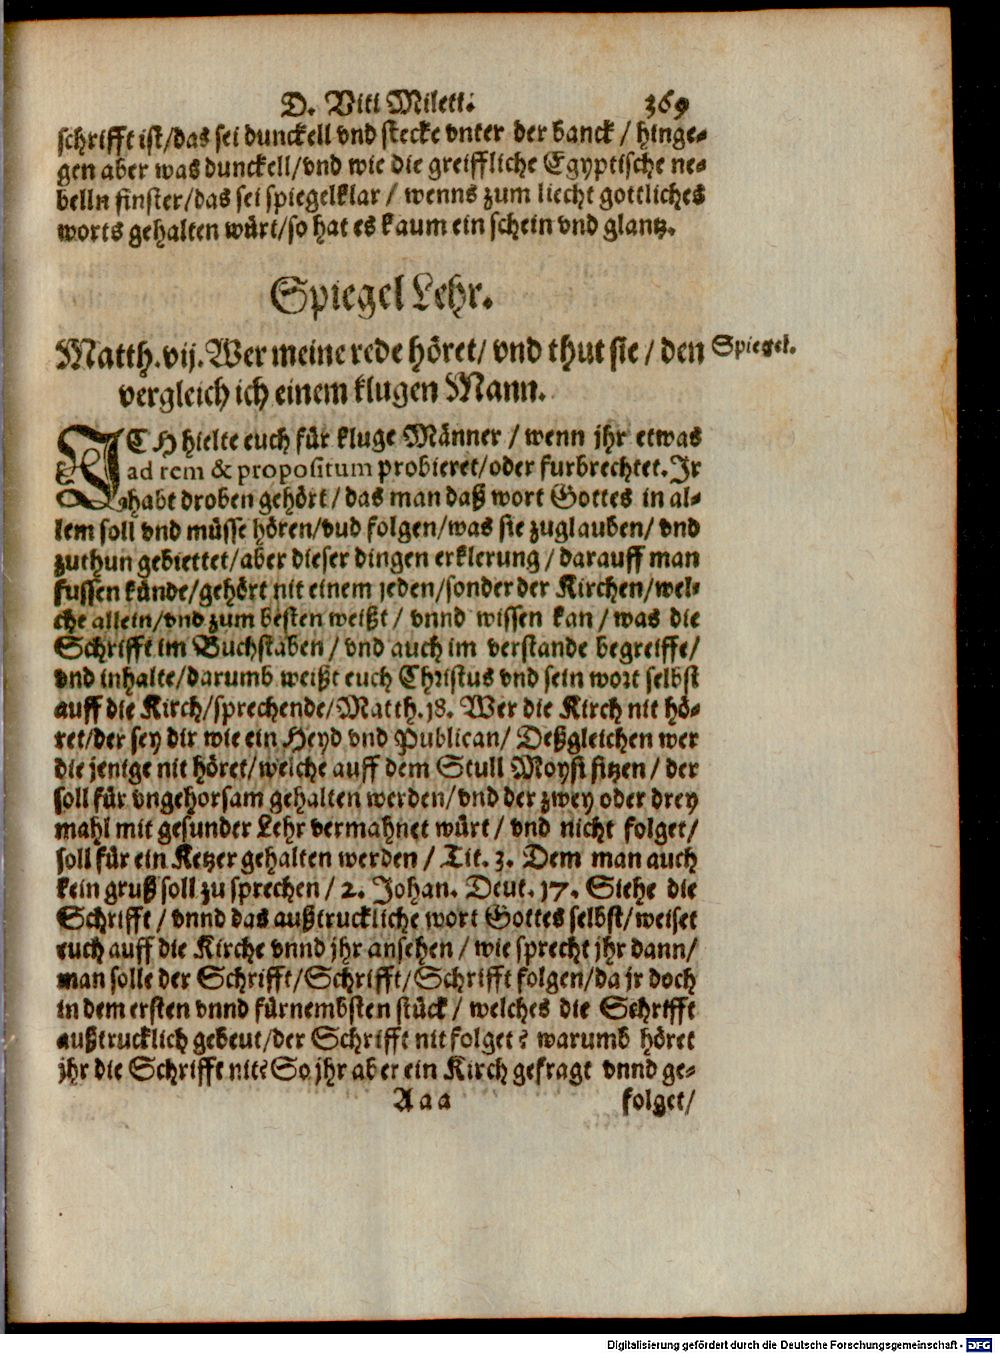 D. Viti Mileti. 369
schrifft ist/das sei dunckell vnd stecke vnter der banck / hinge-
gen aber was dunckell/vnd wie die greiffliche Egyptische ne-
belln finster/das sei spiegelklar / wenns zum liecht gottliches
worts gehalten würt/so hat es kaum ein schein vnd glantz.
Spiegel Lehr.
Matth. vij. Wer meine rede höret/ vnd thut sie / den
Spiegel.
vergleich ich einem klugen Mann.
ICH hielte euch für kluge Männer / wenn jhr etwas
ad rem & propositum probieret/oder furbrechtet. Jr
habt droben gehört / das man daß wort Gottes in al-
lem soll vnd müsse hören/vud folgen/was sie zuglauben/ vnd
zuthun gebiettet/aber dieser dingen erklerung / darauff man
fussen künde/gehört nit einem jeden/sonder der Kirchen/wel-
che allein/vnd zum besten weißt / vnnd wissen kan / was die
Schrifft im Buchstaben / vnd auch im verstande begreiffe/
vnd inhalte/darumb weißt euch Christus vnd sein wort selbst
auff die Kirch/sprechende/Matth. 18. Wer die Kirch nit hö-
ret/der sey dir wie ein Heyd vnd Publican/ Deßgleichen wer
die jenige nit höret/welche auff dem Stull Moysi sitzen / der
soll für vngehorsam gehalten werden/vnd der zwey oder drey
mahl mit gesunder Lehr vermahnet würt / vnd nicht folget/
soll für ein Ketzer gehalten werden / Tit. 3. Dem man auch
kein gruß soll zu sprechen / 2. Johan. Deut. 17. Siehe die
Schrifft / vnnd das außtruckliche wort Gottes selbst/weiset
euch auff die Kirche vnnd jhr ansehen / wie sprecht jhr dann/
man solle der Schrifft/Schrifft/Schrifft folgen/da jr doch
in dem ersten vnnd fürnembsten stück / welches die Schrifft
außtrucklich gebeut/der Schrifft nit folget? warumb höret
jhr die Schrifft nit? So jhr aber ein Kirch gefragt vnnd ge-
Aaa folget/
Digitalisierung gefördert durch die Deutsche Forschungsgemeinschaft - DFG